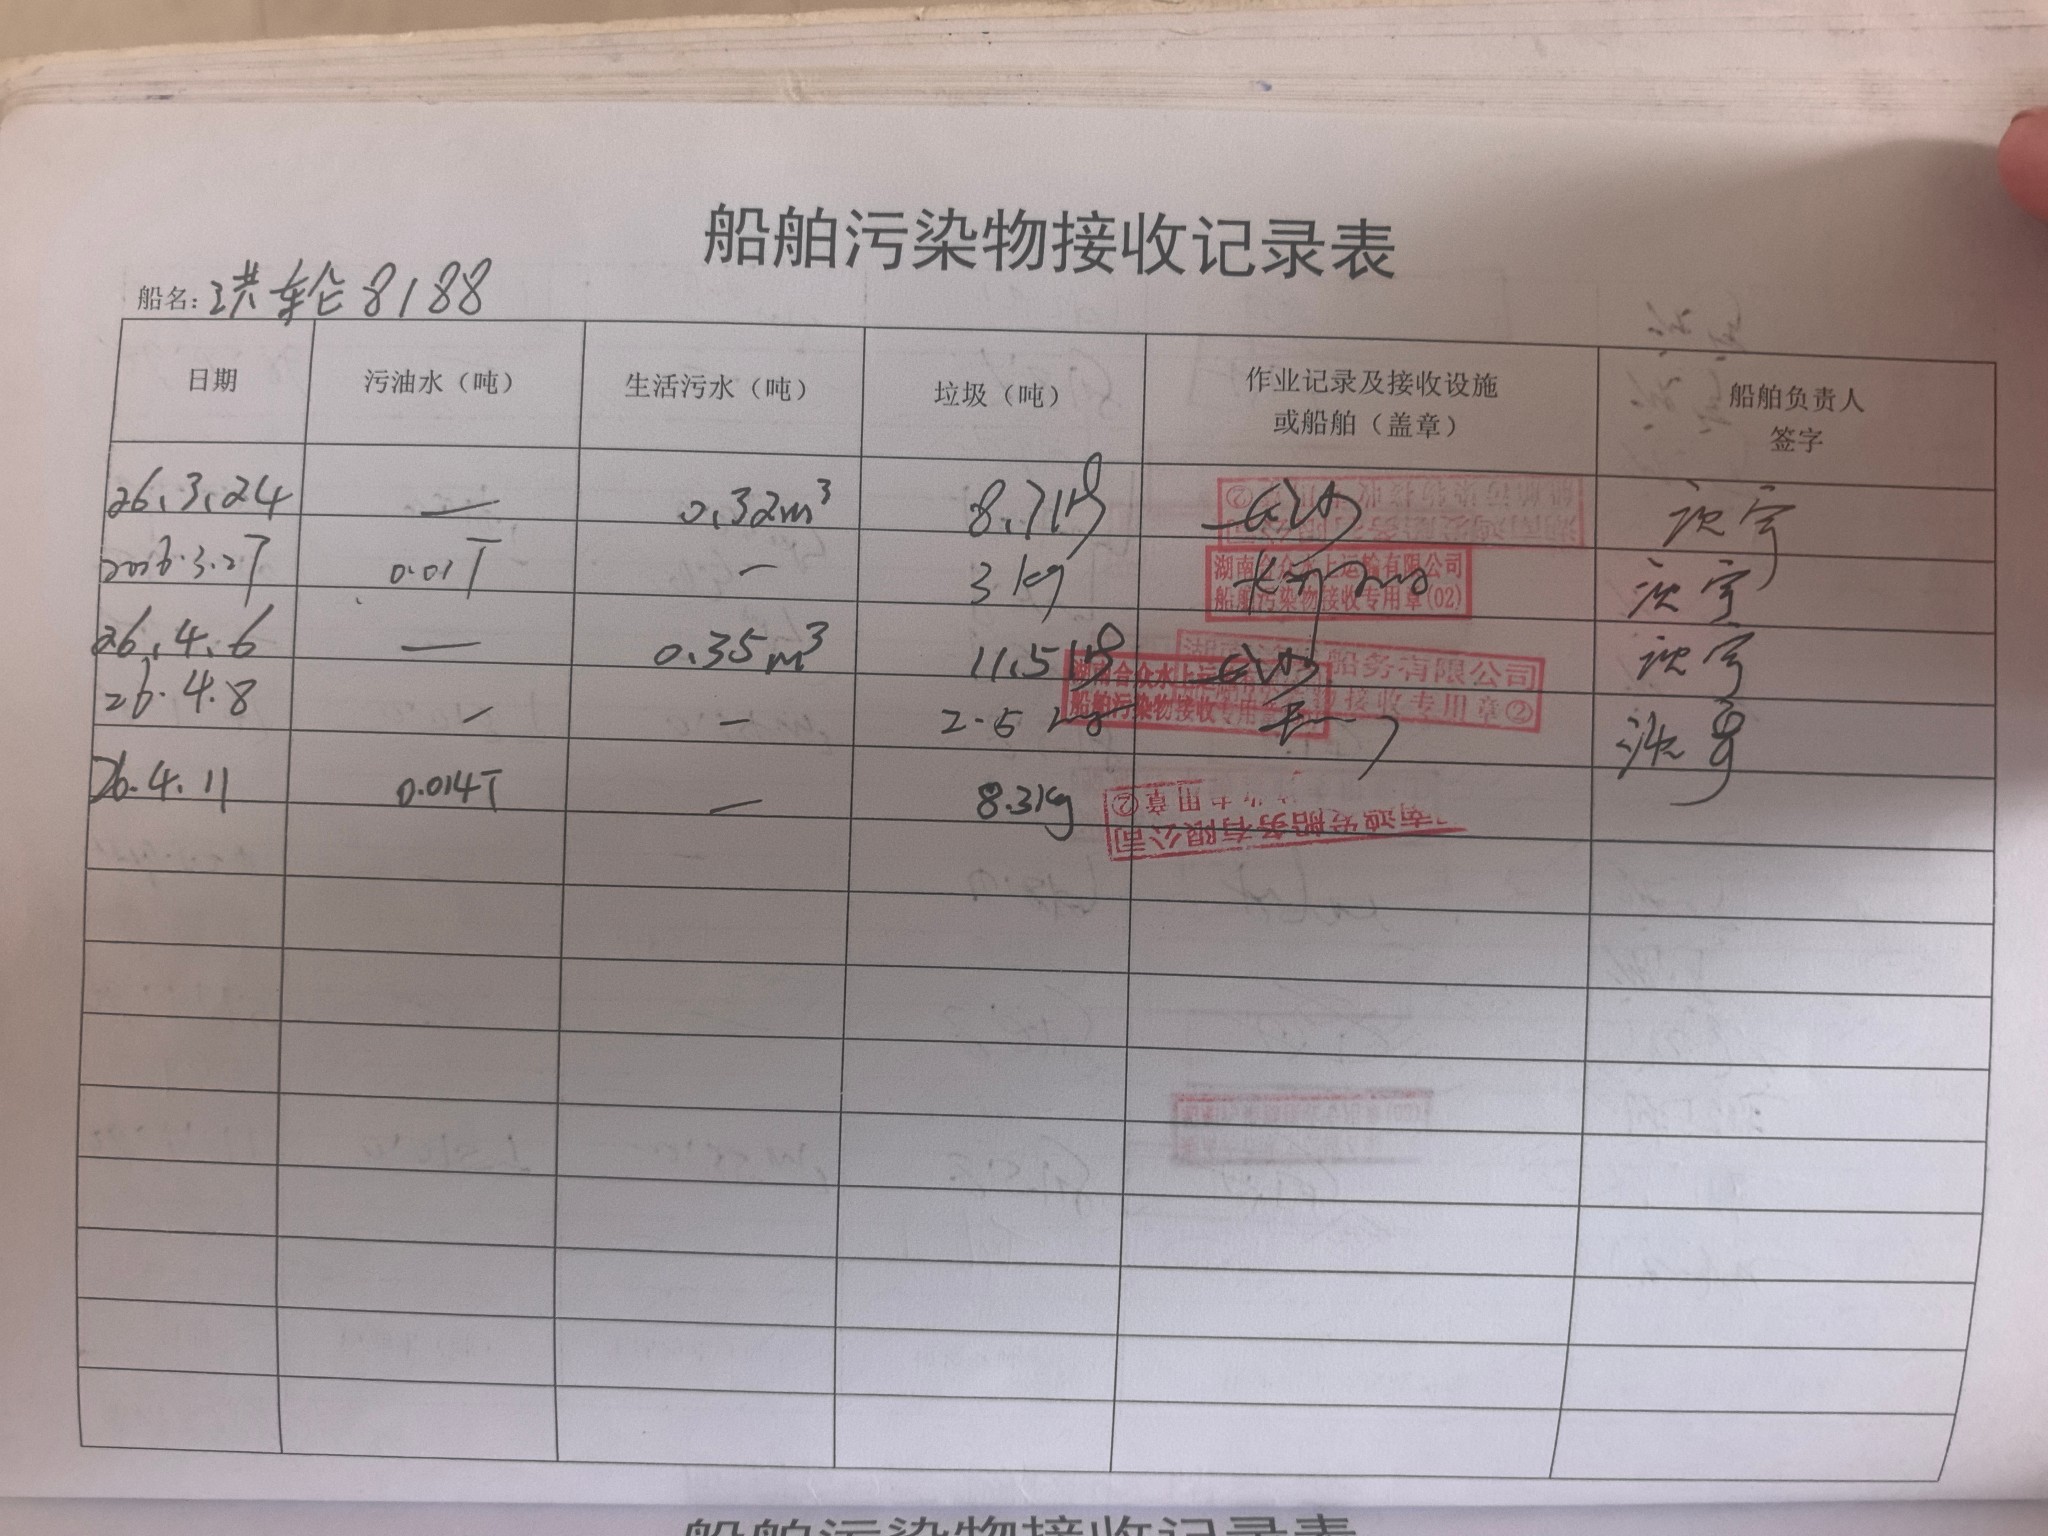 船舶污染物接收记录表
船名：洪轮8188
日期 污油水（吨） 生活污水（吨） 垃圾（吨） 作业记录及接收设施或船舶（盖章） 船舶负责人签字
26.3.24 — 0.32m³ 8.7kg
2026.3.27 0.01T — 3kg
湖南合众水上运输有限公司
船舶污染物接收专用章(02)
26.4.6 — 0.35m³ 11.5kg
船务有限公司
物接收专用章②
26.4.8 — — 2.5kg
湖南合众水上运
船舶污染物接收专用章
26.4.11 0.014T — 8.3kg
发船务有限公司
专用章②
船舶污染物接收记录表